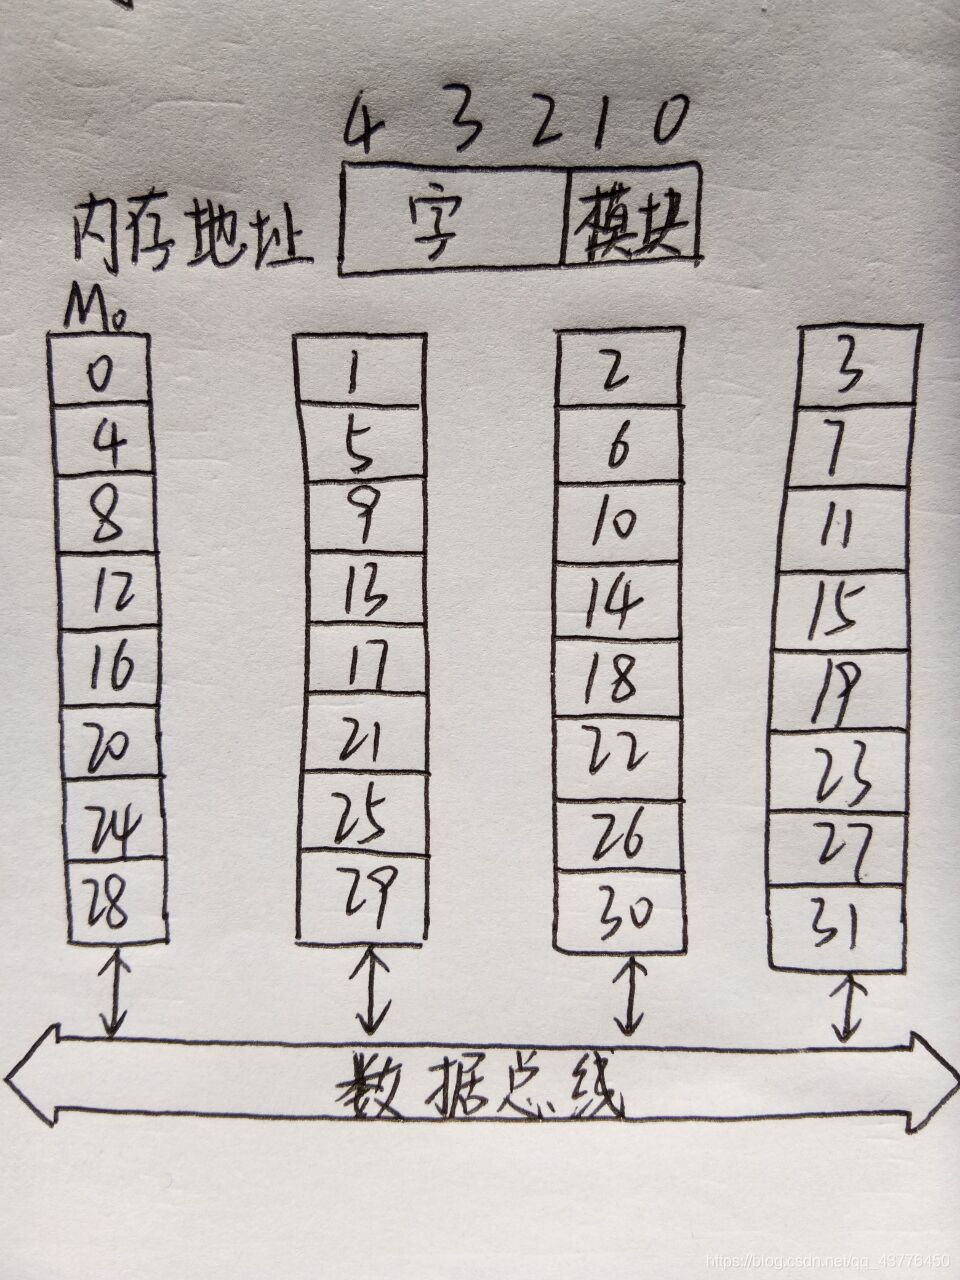 4 3 2 1 0
内存地址 字 模块
M₀
0 1 2 3
4 5 6 7
8 9 10 11
12 13 14 15
16 17 18 19
20 21 22 23
24 25 26 27
28 29 30 31
数据总线
https://blog.csdn.net/qq_43776450